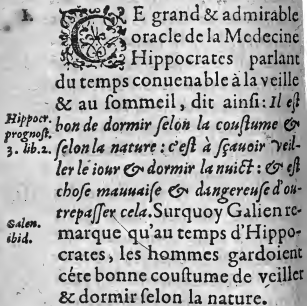 I.
CE grand & admirable
oracle de la Medecine
Hippocrates parlant
du temps conuenable à la veille
& au ſommeil, dit ainſi: Il eſt
Hippocr. prognoſt. 3. lib. 2.
bon de dormir ſelon la couſtume &
ſelon la nature : c'eſt à ſçauoir veil-
ler le iour & dormir la nuict : & eſt
choſe mauuaiſe & dangereuſe d'ou-
trepaſſer cela. Surquoy Galien re-
Galen. ibid.
marque qu'au temps d'Hippo-
crates, les hommes gardoient
céte bonne couſtume de veiller
& dormir ſelon la nature.